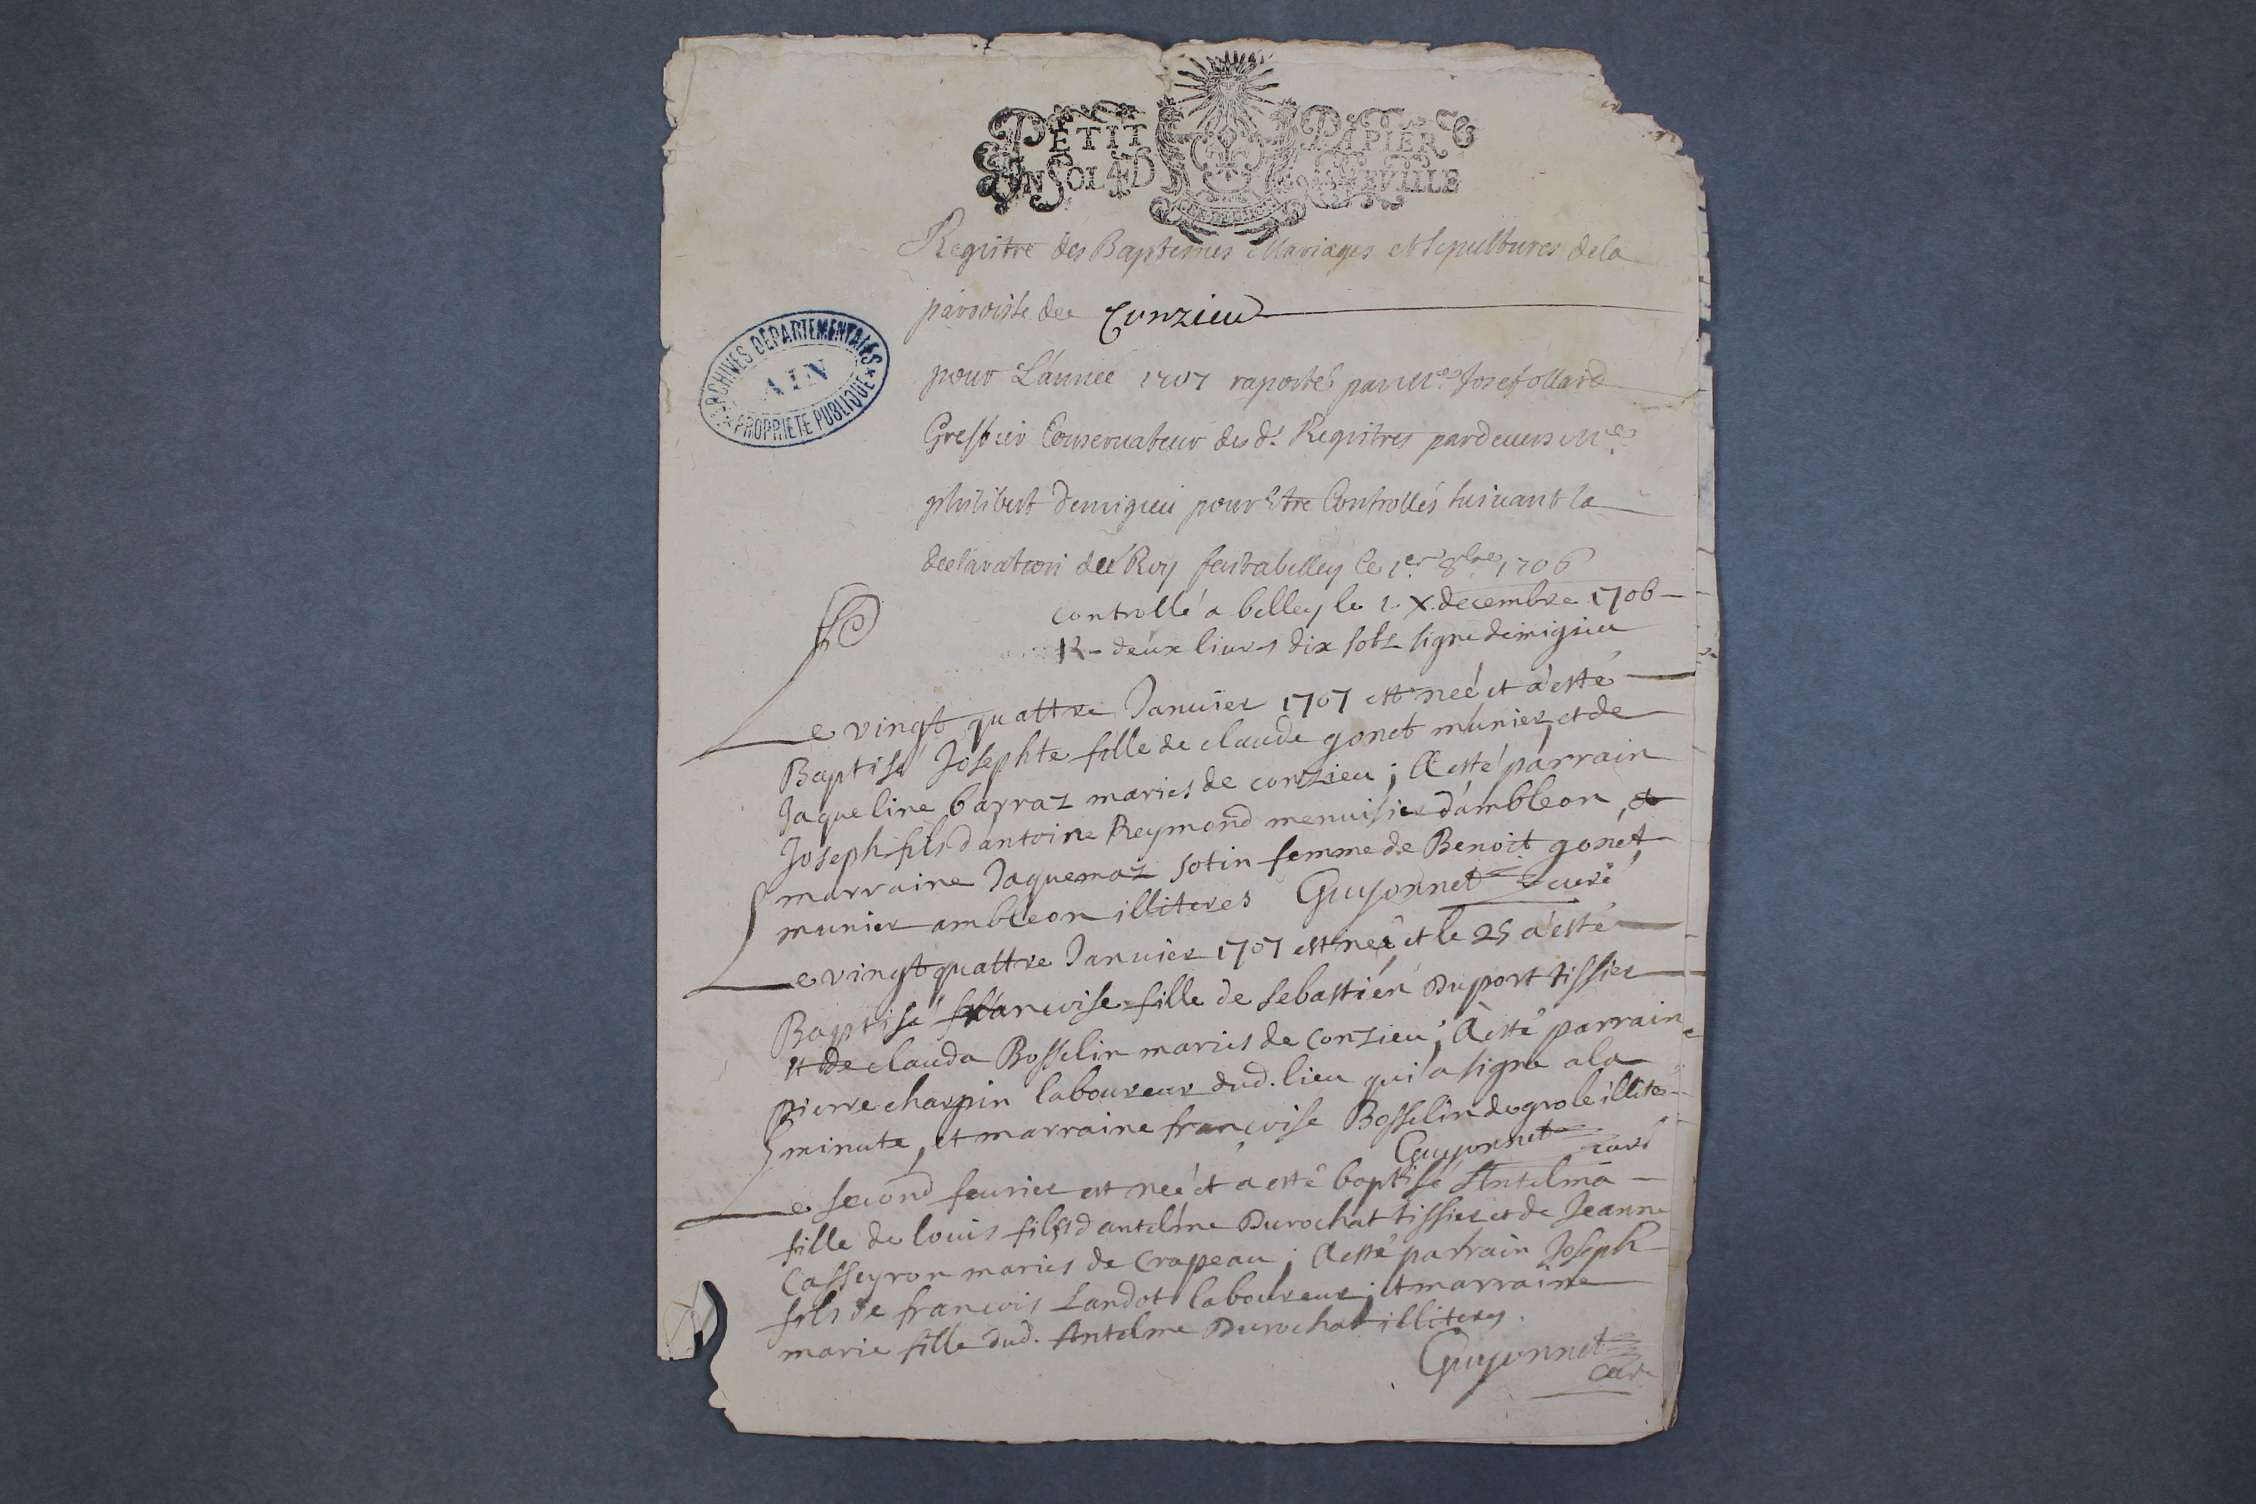 PETIT PAPIER
UN SOL 4 D LE FEVILLE
Registre des Baptesmes Mariages et sepultures dela
parroisse de Conzieu
pour L'année 1707 raporté par Me Josef ollard
Greffier Conservateur des d. Registres pardevers Me
philibert demigieu pour estre Controllés suivant la
declaration du Roy fait a belley le 1er 8bre 1706
controllé a belley le X decembre 1706
R- deux livres dix sols signe demigieu
Le vingt quattre Janvier 1707 est neé et a esté
Baptisé Josephte fille de claude gonet munier, et de
Jaqueline barraz mariés de conzieu; A esté parrain
Joseph fils d'antoine Reymond menuisier d'ambleon, &
marraine Jaquemaz sotin femme de Benoit gonet
munier ambleon illiteres Guyonnet curé
Le vingt quattre Janvier 1707 est neé et le 25 a esté
Baptisé francoise fille de sebastien Duport tissier
et de clauda Bosselin mariés de conzieu; A esté parrain
pierre charpin laboureur dud. lieu qui a signé a la
minute, et marraine francoise Bosselin de grole illite
Guyonnet curé
Le second fevrier est neé et a esté baptisé Antelma
fille de louis fils d'antelme Durochat tissier et de Jeanne
Casseyron mariés de Crapeau; A esté parrain Joseph
fils de francois Landot laboureur, et marraine
marie fille dud. Antelme Durochat illiteres.
Guyonnet
curé
ARCHIVES DEPARTEMENTALES
AIN
PROPRIETE PUBLIQUE